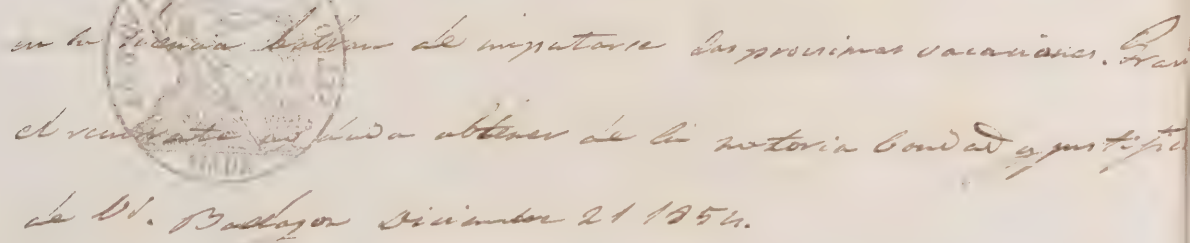 en la licencia habran de imputarse las procsimas vacaciones. Gra
el recurrente no duda obtener de la notoria bondad y justifi
de VI. Badajoz Diciembre 21 1854.